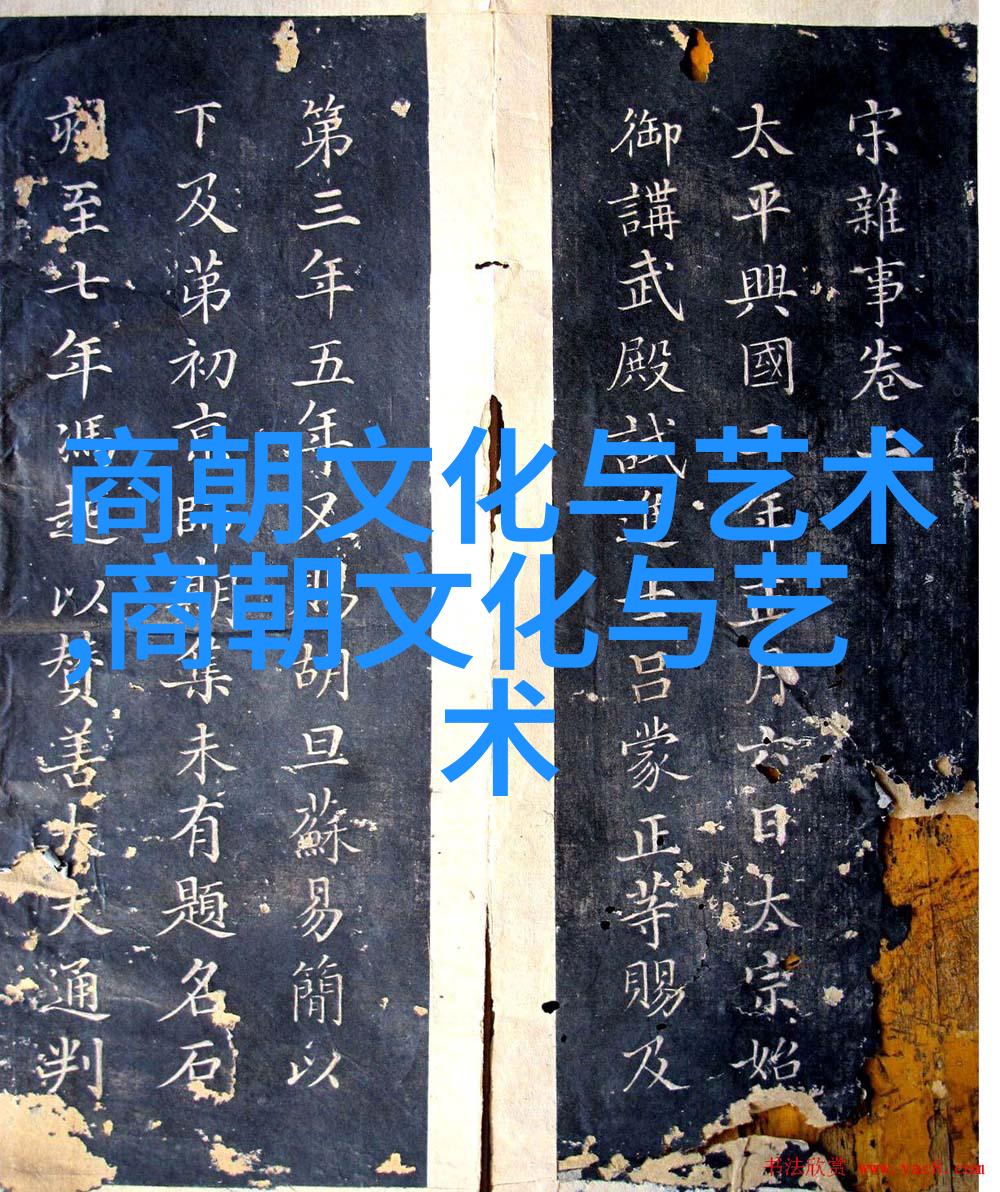 宋雜事卷
太平興國年正月六日太宗始
御講武殿試進士呂蒙正等賜及
第三年五年又胡旦蘇易簡以
下及苐初京師朝集未有題名石
至七年馮起以贊善大夫通判
商朝文化与艺术
,商朝文化与艺
术
书法欣赏 www.yac8.com